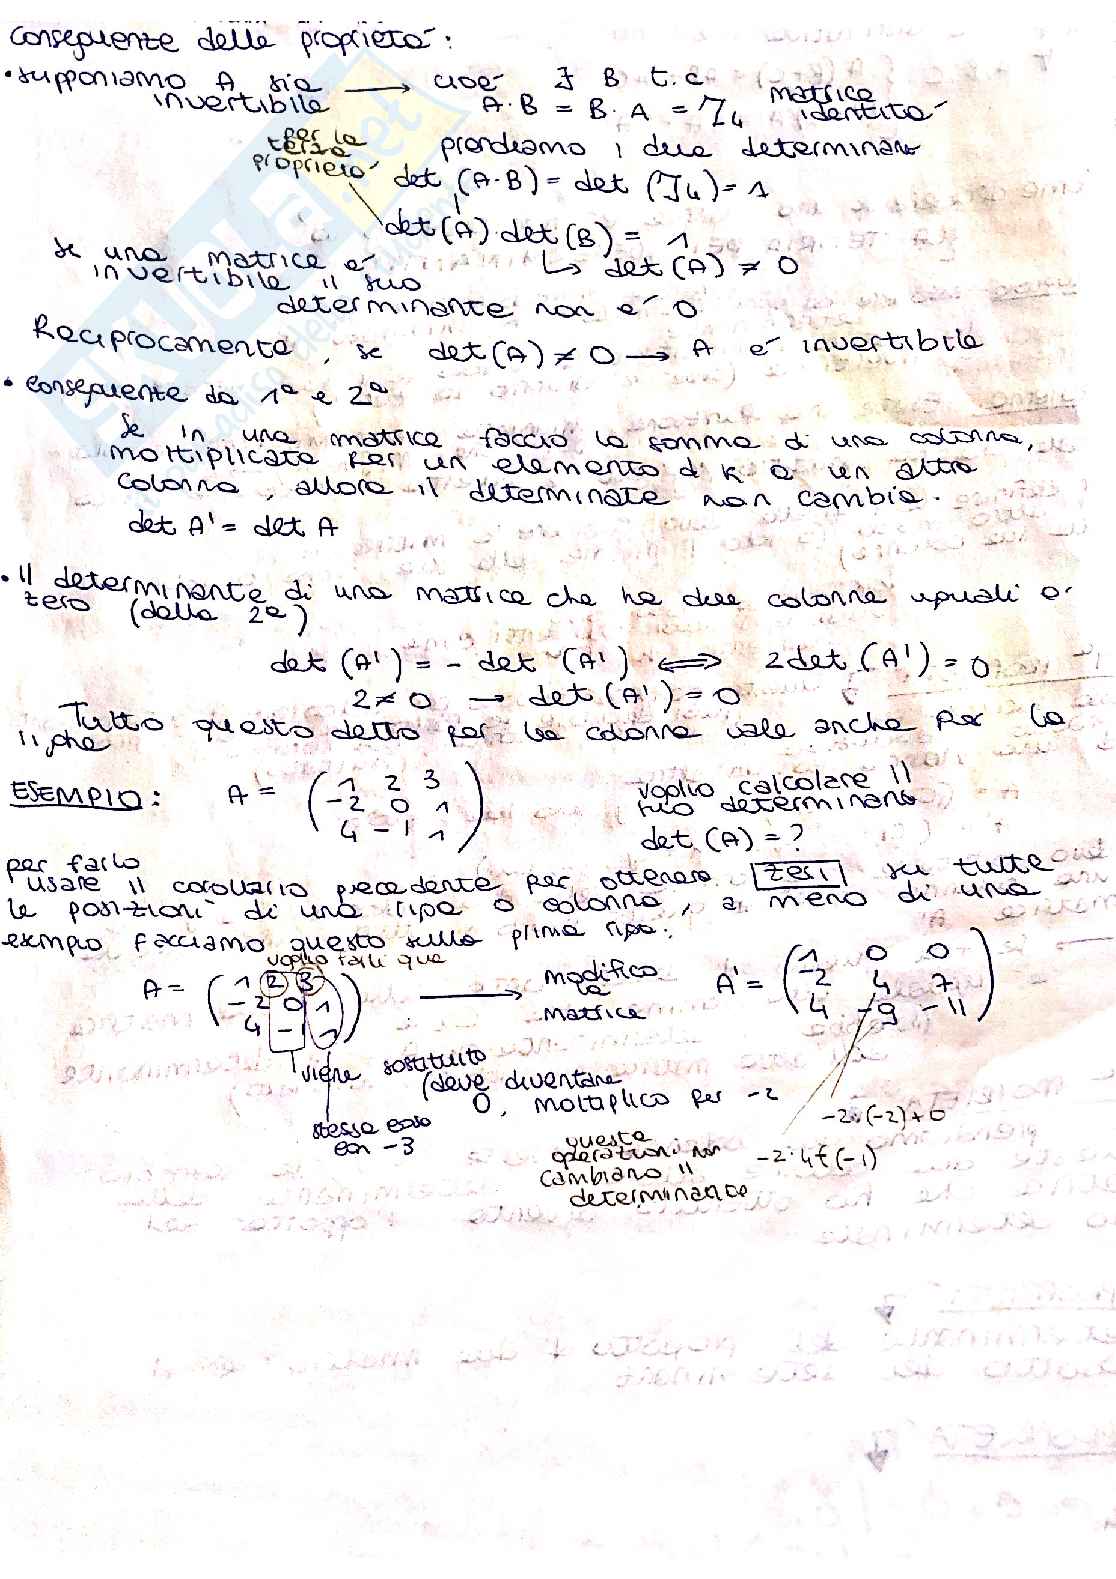 conseguenze delle proprietà:
• supponiamo A sia invertibile → cioè ∃ B t.c
A·B = B·A = I4 matrice identità
per la terza proprietà
prendiamo i due determinan
det (A·B) = det (I4) = 1
det(A)·det(B) = 1
↳ det(A) ≠ 0
se una matrice è invertibile il suo
determinante non è 0
Reciprocamente, se det(A) ≠ 0 → A è invertibile
• conseguenze da 1ª e 2ª
se in una matrice faccio la somma di una colonna,
moltiplicata per un elemento d K a un altra
colonna, allora il determinate non cambia.
det A' = det A
• il determinante di una matrice che ha due colonne uguali è
zero (dalla 2ª)
det (A') = - det (A') ⟺ 2det (A') = 0
2 ≠ 0 → det (A') = 0
Tutto questo detto per le colonne vale anche per le
righe
ESEMPIO: A = ( 1 2 3
-2 0 1
4 -1 1 )
voglio calcolare il
suo determinan
det (A) = ?
per farlo
usare il corollario precedente per ottenere zeri su tutte
le posizioni di una riga o colonna, a meno di una
esempio facciamo questo sulla prima riga:
voglio farli qua
A = ( 1 2 3
-2 0 1
4 -1 1 )
→ modifico la matrice
A' = ( 1 0 0
-2 4 7
4 -9 -11 )
viene sostituito
(deve diventare
0, moltiplico per -2
stessa cosa
con -3
-2·(-2)+0
-2·4+(-1)
queste
operazioni non
cambiano il
determinante